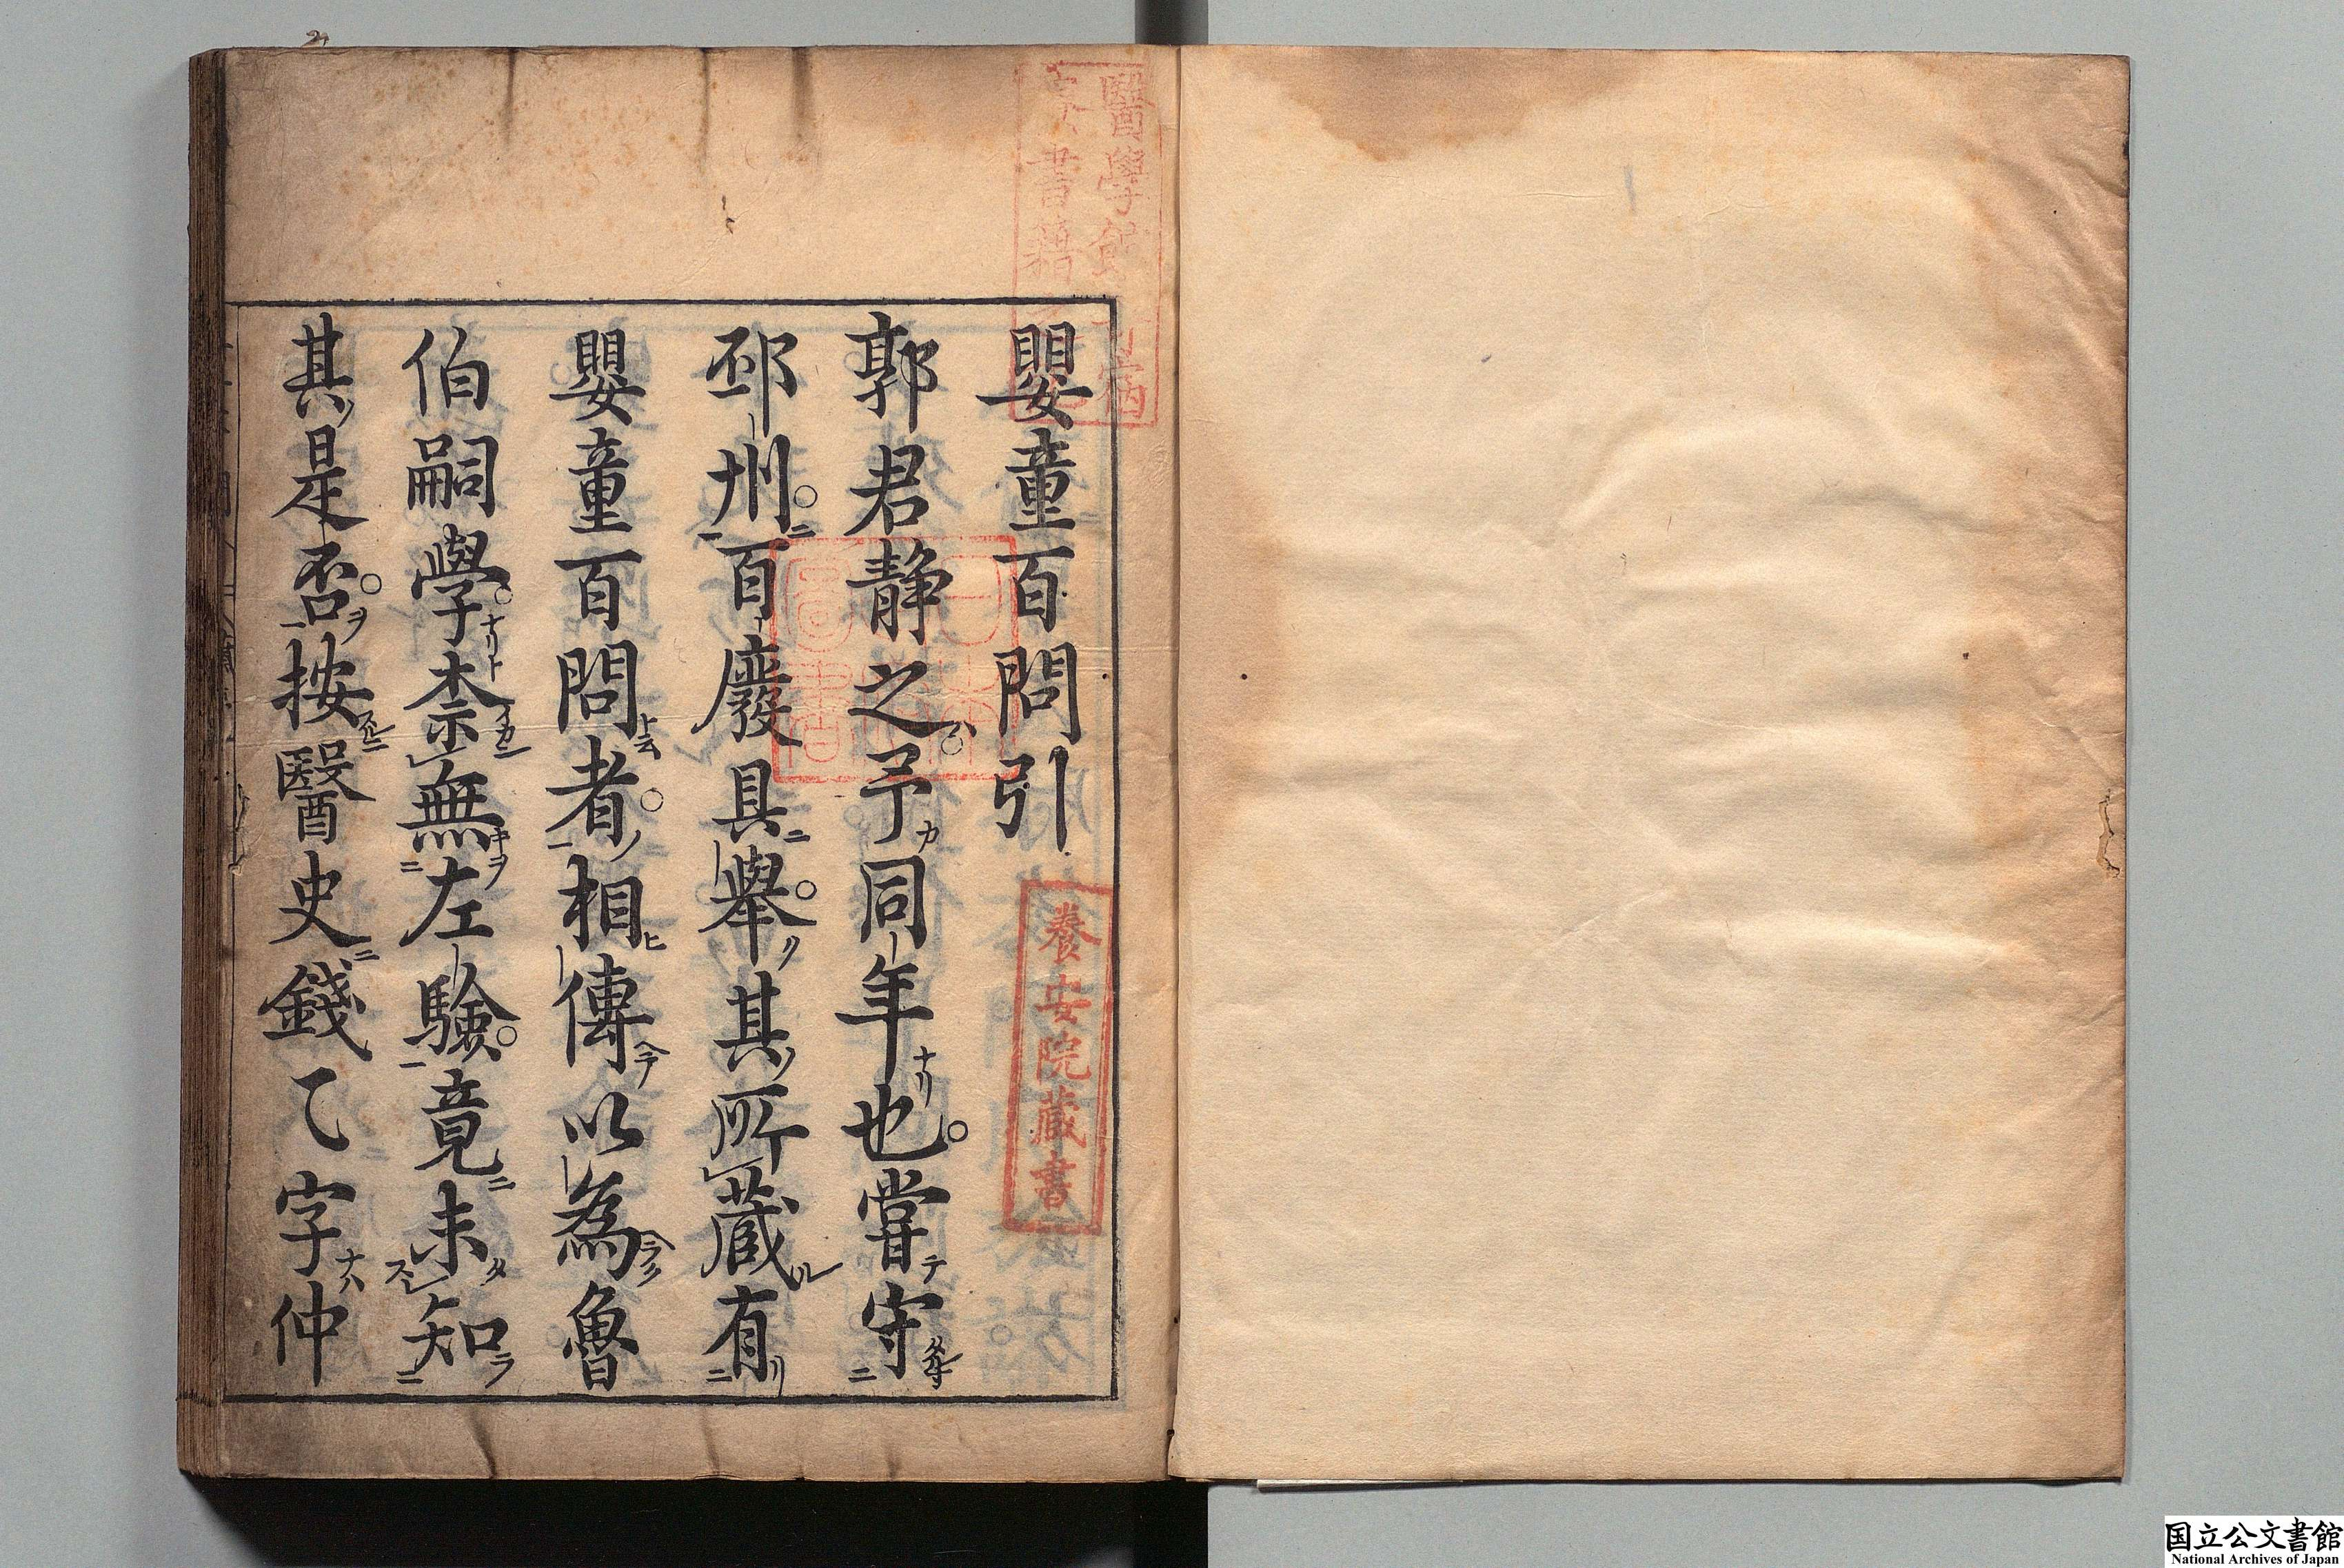 嬰童百問引
郭君靜之予同年也嘗守
邳州百廢具舉其所藏有
嬰童百問者相傳以為魯
伯嗣學柰無左驗竟未知
其是否按醫史錢乙字仲
養安院藏書
国立公文書館
National Archives of Japan